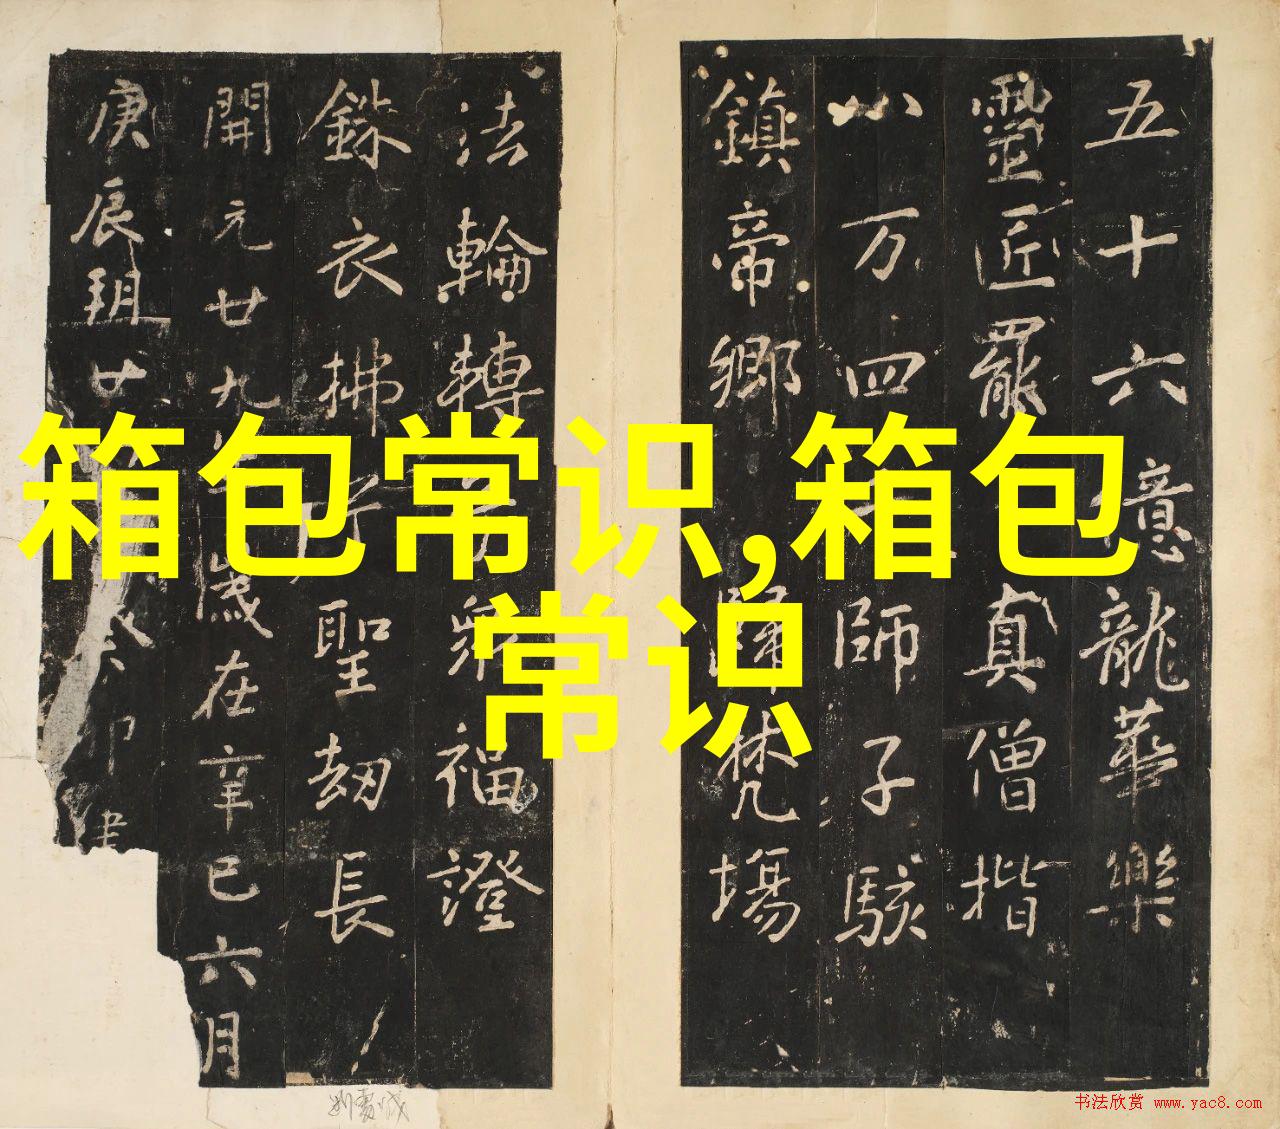 箱包常识,箱包
常识
五十六億龍華樂
靈匠罷真僧揩
八万四師子駭
鎮帝鄉歸梵場
法輪轉福證
銖衣拂聖劫長
開元廿九歲在辛巳六月
庚辰朔廿癸卯建
书法欣赏 www.yac8.com